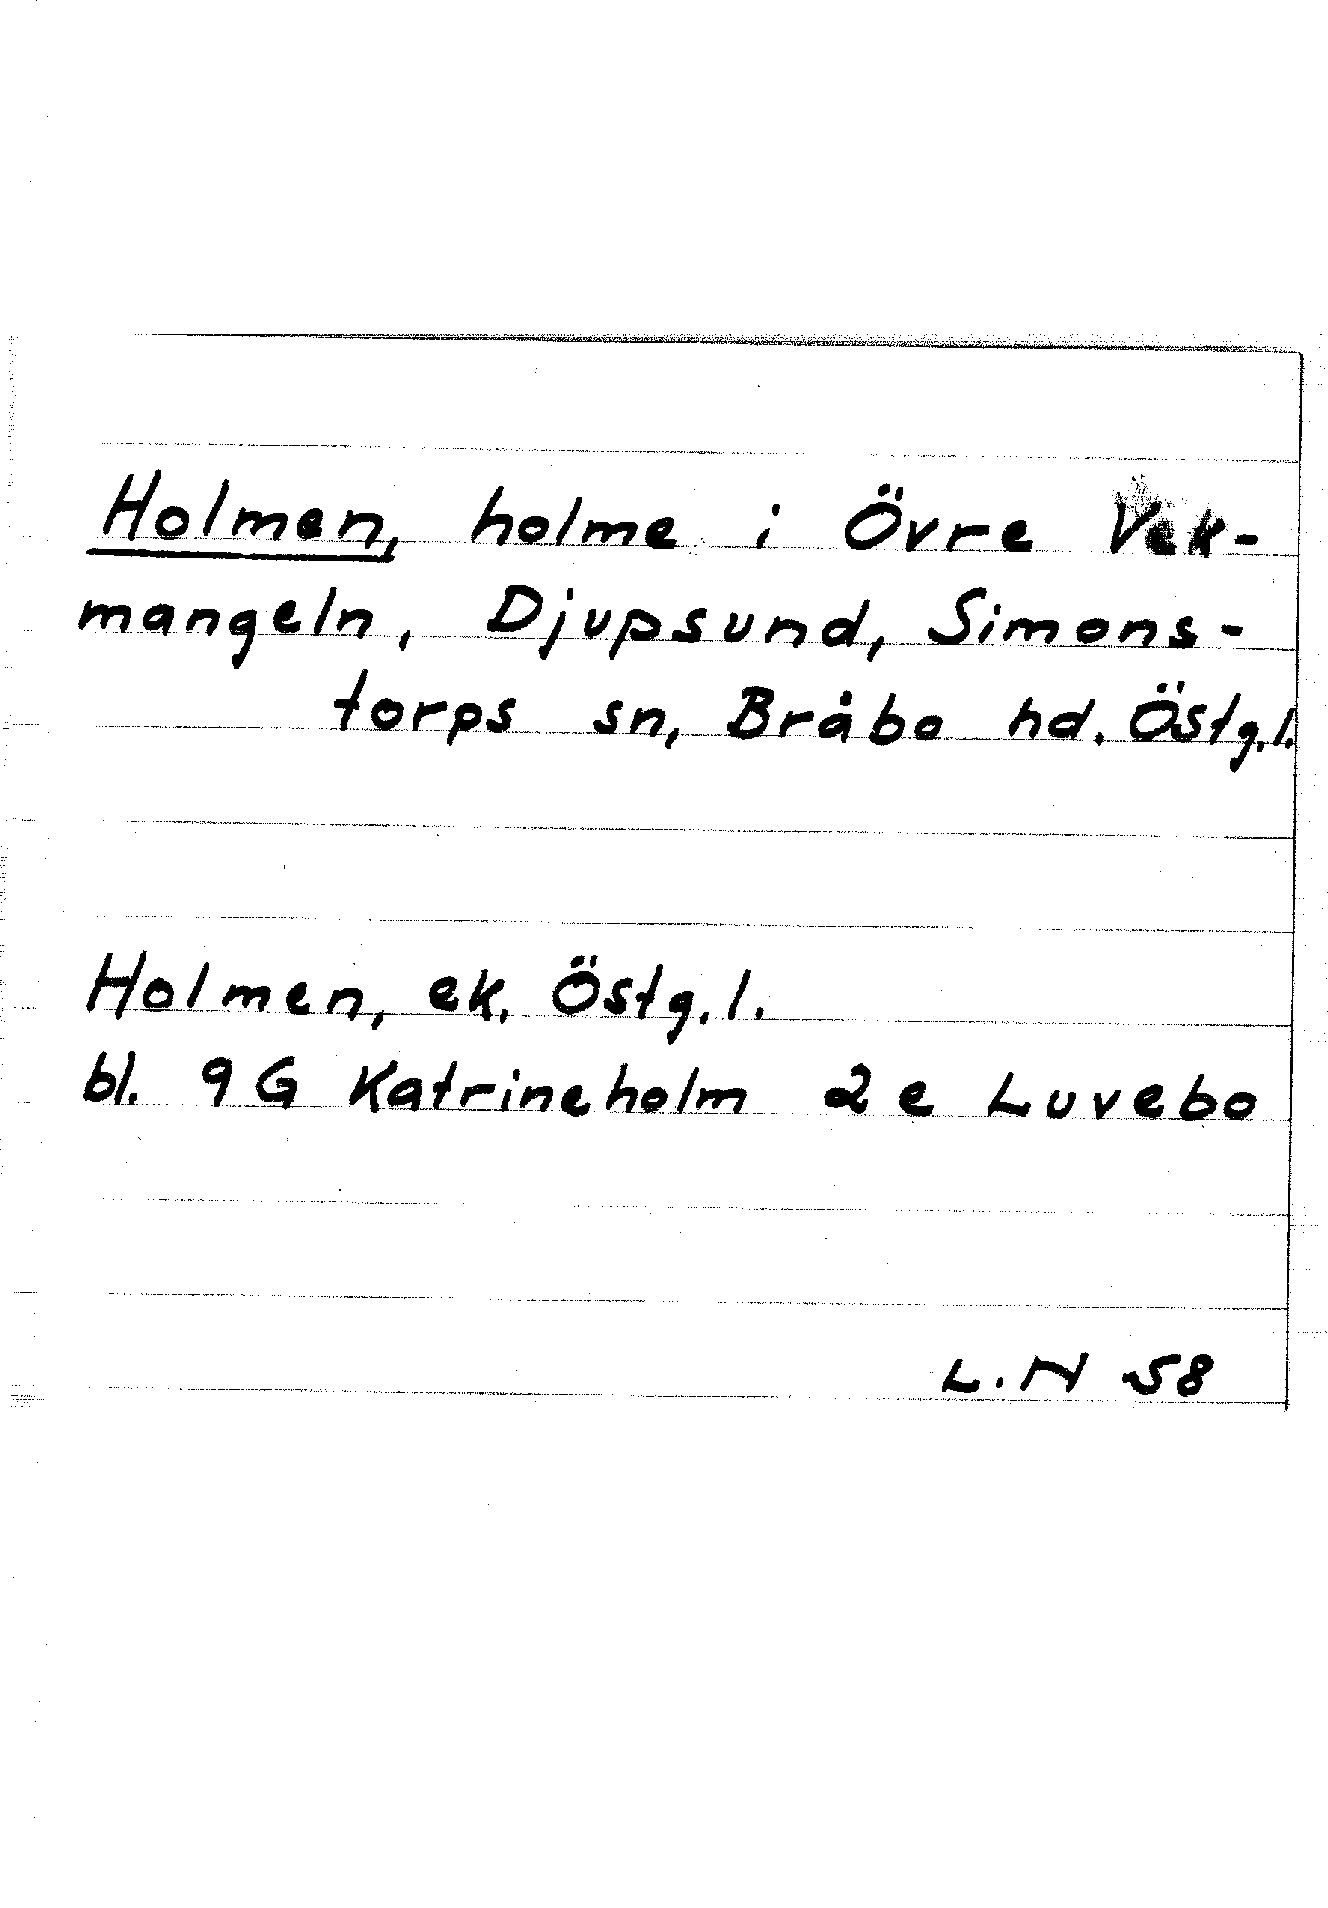 Holmen, holme i Övre Vek-
mangeln, Djupsund, Simons-
torps sn, Bråbo hd. Östg.l.
Holmen, ek. Östg.l.
bl. 9G Katrineholm 2e Luvebo
L.N 58